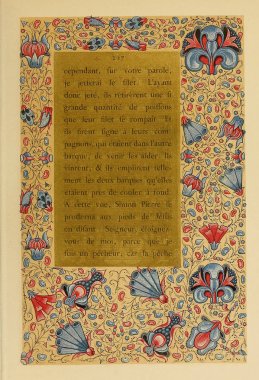 217
cependant, sur votre parole,
je jetterai le filet. L'ayant
donc jeté, ils retirèrent une si
grande quantité de poissons
que leur filet se rompait. Et
ils firent signe à leurs com-
pagnons, qui étaient dans l'autre
barque, de venir les aider. Ils
vinrent, & ils emplirent telle-
ment les deux barques qu'elles
étaient près de couler à fond.
A cette vue, Simon Pierre se
prosterna aux pieds de Jésus
en disant: Seigneur, éloignez-
vous de moi, parce que je
suis un pécheur, car la pêche